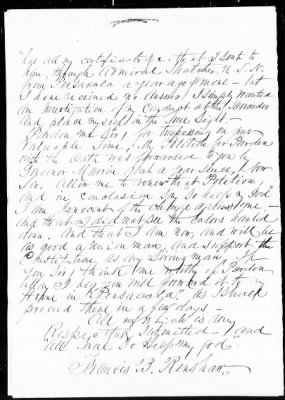 has all my certificates &c. that I sent to
you, through Admiral Thatcher, U.S.N.
from Pensacola a year ago & more - but
I have received no answer. I simply wanted
an investigation of my conduct at the surrender
and place myself in the true light -
Pardon me Sir, for trespassing on your
valuable time, My Petition for Pardon
with the Oath was forwarded to you by
Governor Marvin, just a year since, Now
Sir, allow me to renew that Petition
and in conclusion say So help my God
I am innocent of the charge against me -
and that I did not see the Colors hauled
down, and that I am now, and will be
as good a Union man, and support the
Constitution, as any living man. If
you Sir, think me worthy of Pardon
why I beg you will forward it to my
Home in "Pensacola" as I shall
proceed there in a few days -
All of which is very
Respectfully submitted - and
all true So help my God
Francis B. Renshaw